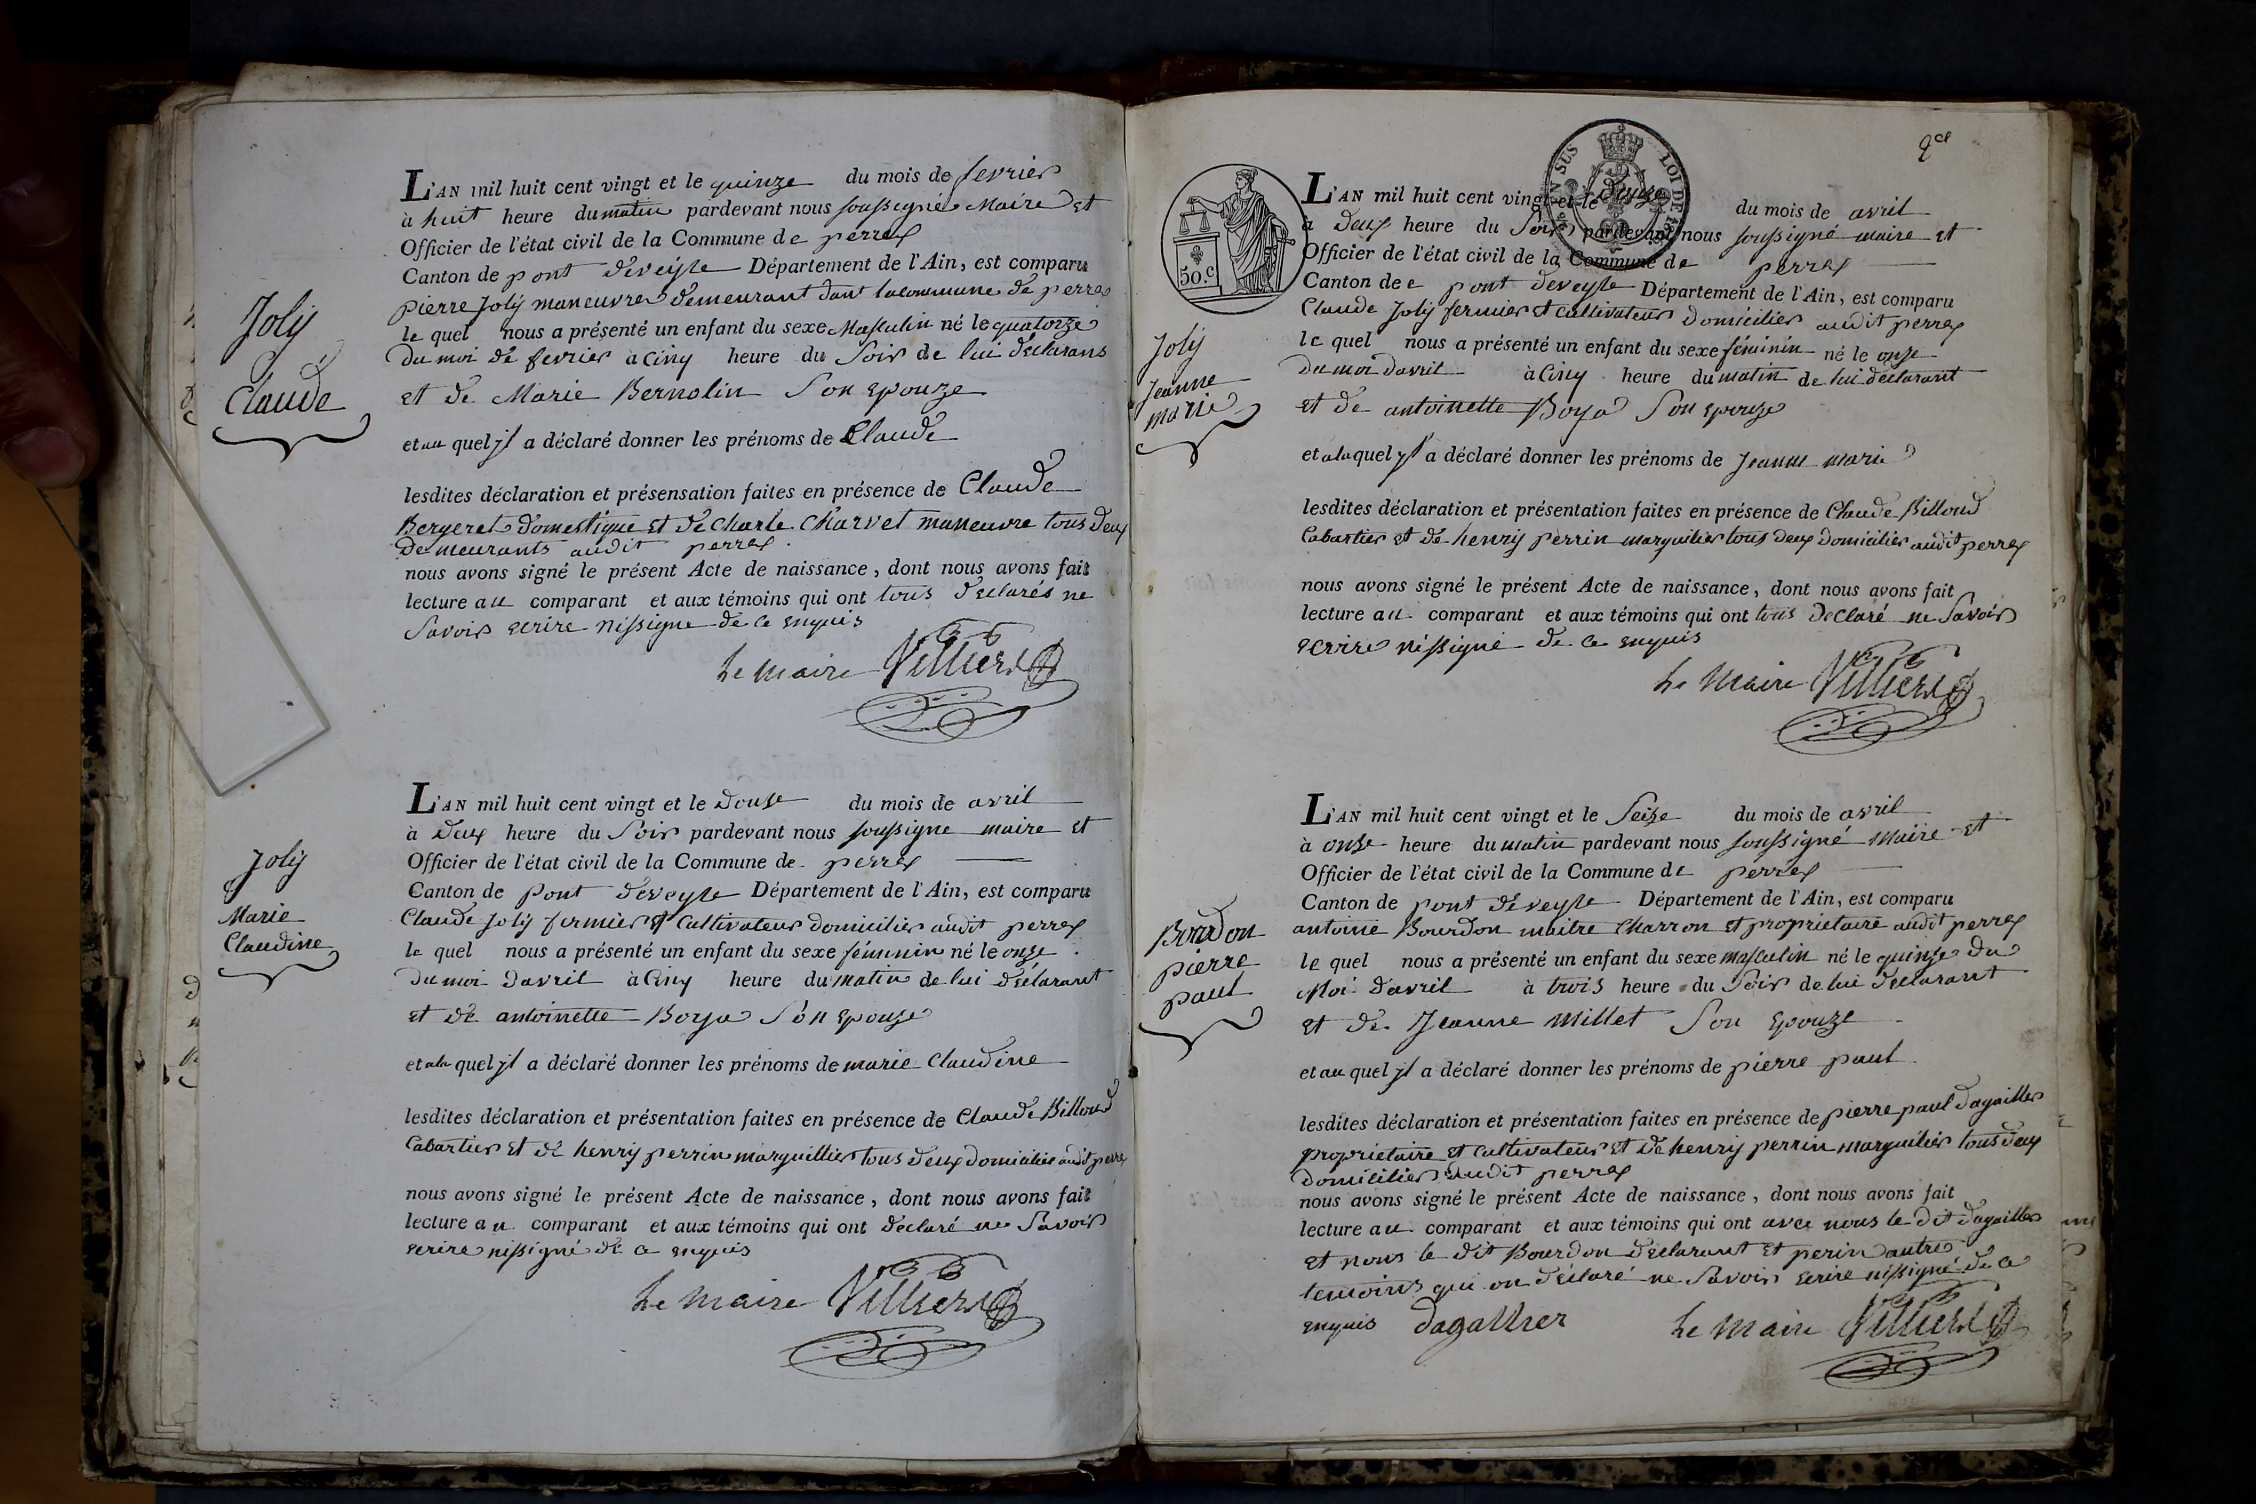 Joly
Claude
L'AN mil huit cent vingt et le quinze du mois de fevrier
à huit heure du matin pardevant nous soussigné Maire et
Officier de l'état civil de la Commune de perrex
Canton de pont deveyle Département de l'Ain, est comparu
pierre Joly maneuvre demeurant dant la commune de perrex
le quel nous a présenté un enfant du sexe Masculin né le quatorze
du moi de fevrier à Cinq heure du Soir de lui déclarans
et de Marie Bernolin Son epouze
et au quel jl a déclaré donner les prénoms de Claude
lesdites déclaration et présensation faites en présence de Claude
Bergeret domestique et de Charle Charvet maneuvre tous deux
demeurants audit perrex
nous avons signé le présent Acte de naissance, dont nous avons fait
lecture au comparant et aux témoins qui ont tous declarés ne
Savoir ecrire nissigne de ce enquis
Le maire Villiers
Joly
Marie
Claudine
L'AN mil huit cent vingt et le douse du mois de avril
à deux heure du Soir pardevant nous soussigne maire et
Officier de l'état civil de la Commune de perrex
Canton de pont deveyle Département de l'Ain, est comparu
Claude Joly fermier et Cultivateur domicilier audit perrex
le quel nous a présenté un enfant du sexe féminin né le onze
du moi davril à Cinq heure du matin de lui déclarant
et de antoinette Boya Son epouze
et ala quel jl a déclaré donner les prénoms de marie Claudine
lesdites déclaration et présentation faites en présence de Claude Billoud
Cabartier et de henry perrin marguillier tous deux domicilier audit perrex
nous avons signé le présent Acte de naissance, dont nous avons fait
lecture au comparant et aux témoins qui ont declaré ne Savoir
ecrire nissigné de ce enquis
Le maire Villiers
2e
50.c
SUS
LOI DE
Joly
Jeanne
marie
L'AN mil huit cent vingt et le douze du mois de avril
à deux heure du Soir pardevant nous soussigné maire et
Officier de l'état civil de la Commune de perrex
Canton de e pont deveyle Département de l'Ain, est comparu
Claude Joly fermier et Cultivateur domicilier audit perrex
le quel nous a présenté un enfant du sexe féminin né le onze
du moi davril à Cinq heure du matin de lui declarant
et de antoinette Boya Son epouze
et ala quel jl a déclaré donner les prénoms de Jeanne marie
lesdites déclaration et présentation faites en présence de Claude Billoud
Cabartier et de henry perrin marguilier tous deux domicilier audit perrex
nous avons signé le présent Acte de naissance, dont nous avons fait
lecture au comparant et aux témoins qui ont tous declaré ne Savoir
ecrire nissigné de ce enquis
Le Maire Villiers
Bourdon
pierre
paul
L'AN mil huit cent vingt et le Seize du mois de avril
à onze heure du matin pardevant nous soussigné Maire et
Officier de l'état civil de la Commune de perrex
Canton de pont deveyle Département de l'Ain, est comparu
antoine Bourdon maitre Charron et proprietaire audit perrex
le quel nous a présenté un enfant du sexe masculin né le quinze du
Moi davril à trois heure du Soir de lui declarant
et de Jeanne Millet Son epouze
et au quel jl a déclaré donner les prénoms de pierre paul
lesdites déclaration et présentation faites en présence de pierre paul dagaillier
proprietaire et Cultivateur et de henry perrin marguilier tous deux
domicilier audit perrex
nous avons signé le présent Acte de naissance, dont nous avons fait
lecture au comparant et aux témoins qui ont avec nous le dit dagaillier
et nous le dit Bourdon declarant et perin autre
temoins qui on déclaré ne Savoir ecrire nissigné de ce
enquis dagallier Le maire Villiers